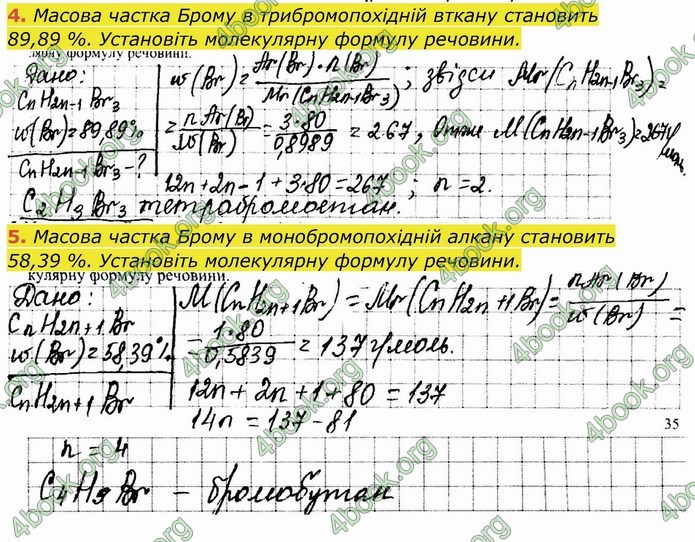 4. Масова частка Брому в трибромопохідній вткану становить
89,89 %. Установіть молекулярну формулу речовини.
лярну формулу речовини.
Дано:
CnH2n-1Br3
w(Br)=89,89%
CnH2n-1Br3-?
w(Br)=Ar(Br)·n(Br)/Mr(CnH2n-1Br3); звідси Mr(CnH2n-1Br3)=
=nAr(Br)/w(Br)=3·80/0,8989=267; Отже M(CnH2n-1Br3)=267г/моль.
12n+2n-1+3·80=267; n=2.
C2H3Br3 тетрабромоетан.
5. Масова частка Брому в монобромопохідній алкану становить
58,39 %. Установіть молекулярну формулу речовини.
кулярну формулу речовини.
Дано:
CnH2n+1Br
w(Br)=58,39%
CnH2n+1Br
M(CnH2n+1Br)=Mr(CnH2n+1Br)=nAr(Br)/w(Br)=
=1·80/0,5839=137г/моль.
12n+2n+1+80=137
14n=137-81
35
n=4
C4H9Br - бромобутан
4book.org